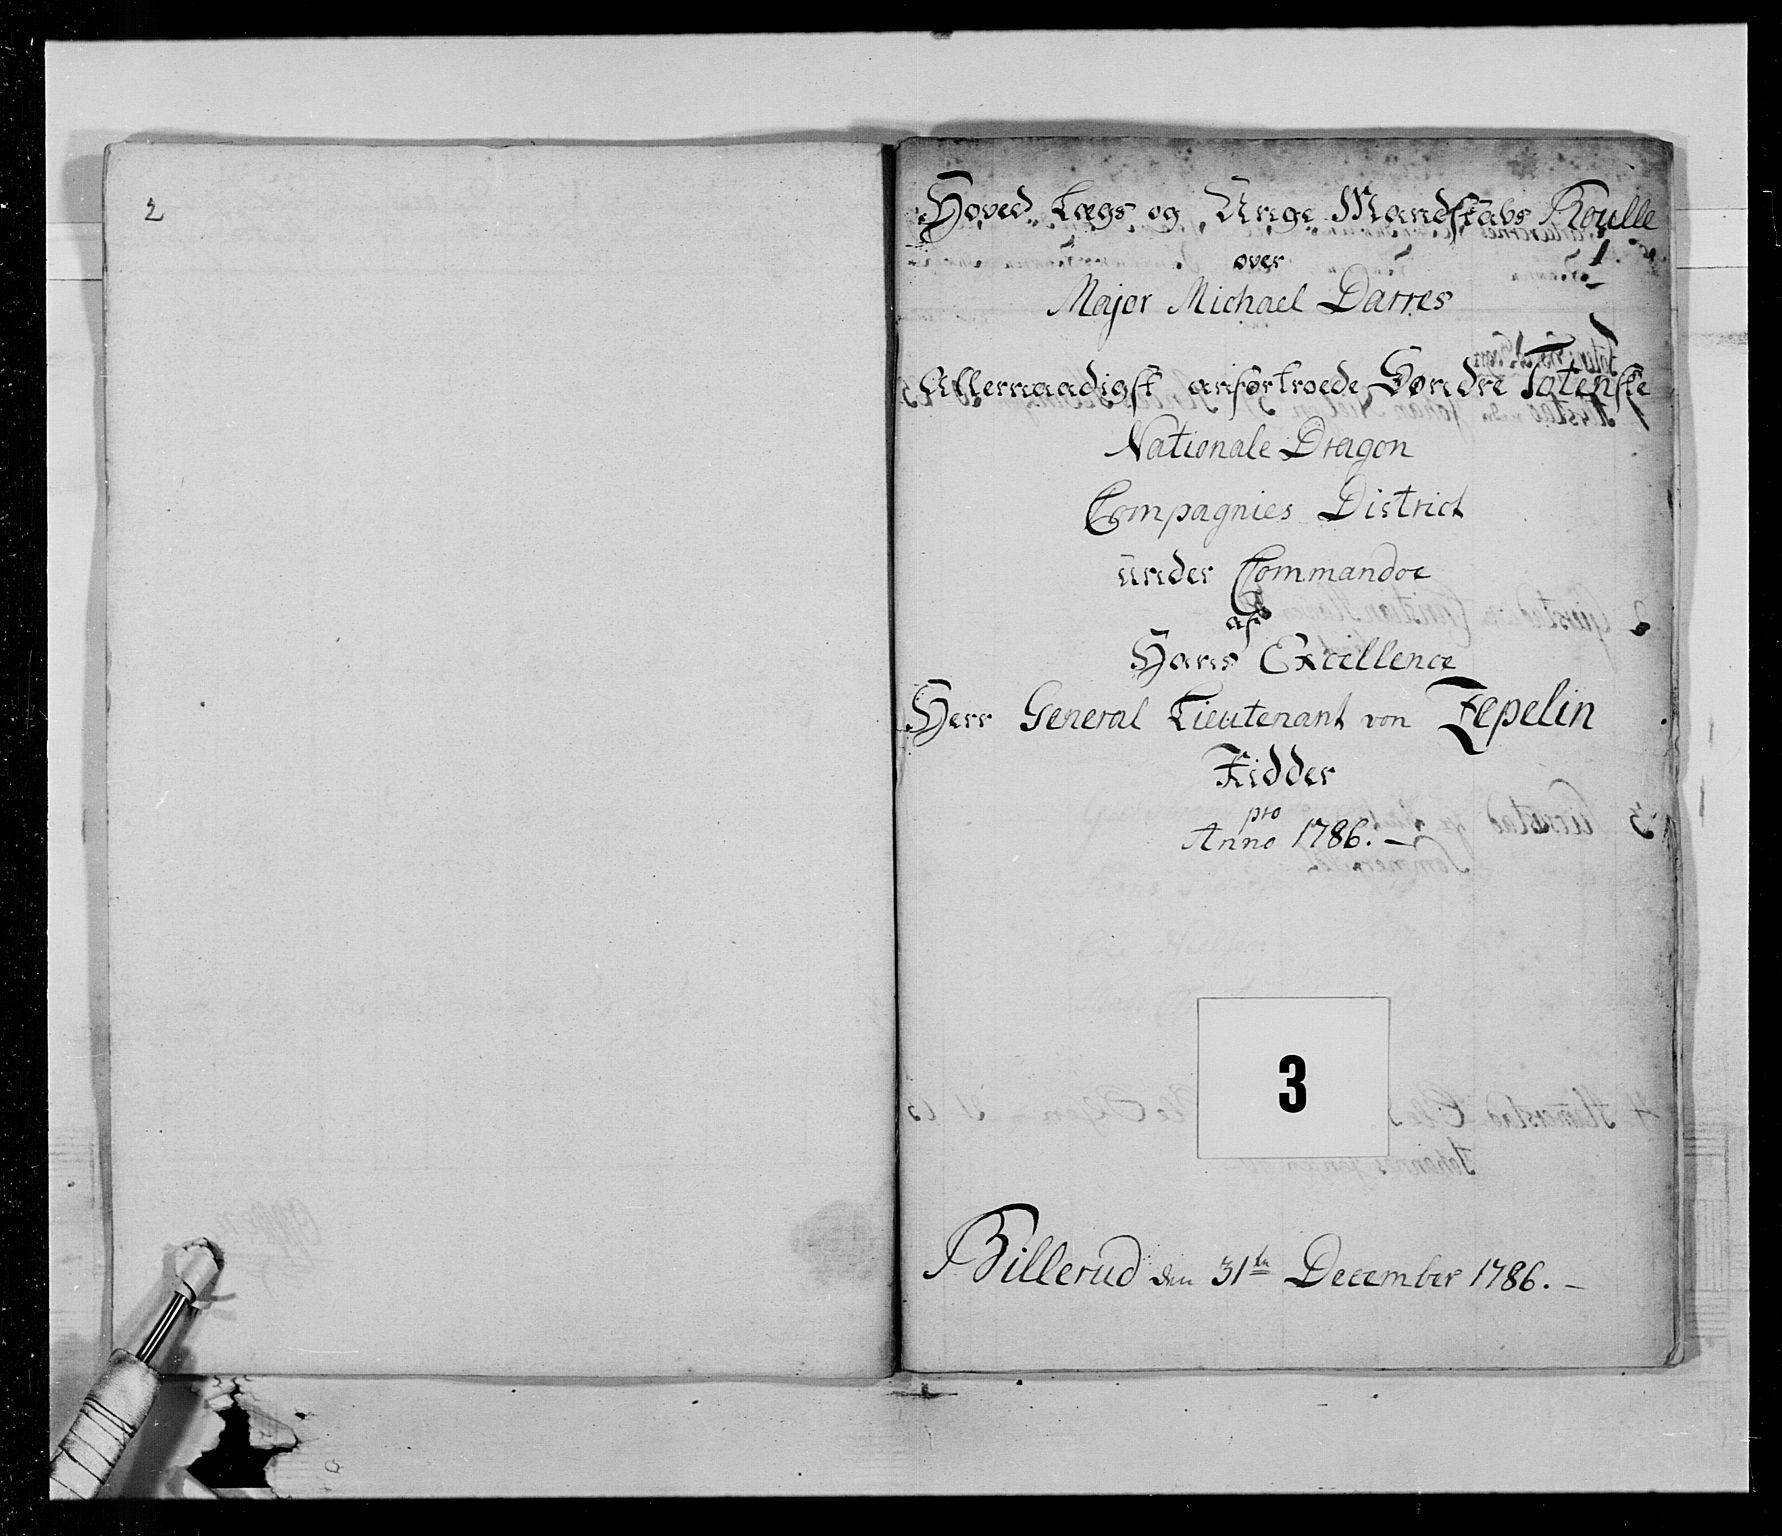 2
Hoved Lægs og Unge Mandskabs Roulle
1.
over
Major Michael Darres
Allernaadigst anfortroede Søndre Totenske
Nationale Dragon
Compagnies District
under Commandoe
af
Hans Excellence
Herr General Lieutenant von Zepelin
Ridder
pro
Anno 1786. -
3
Billerud den 31te December 1786. -